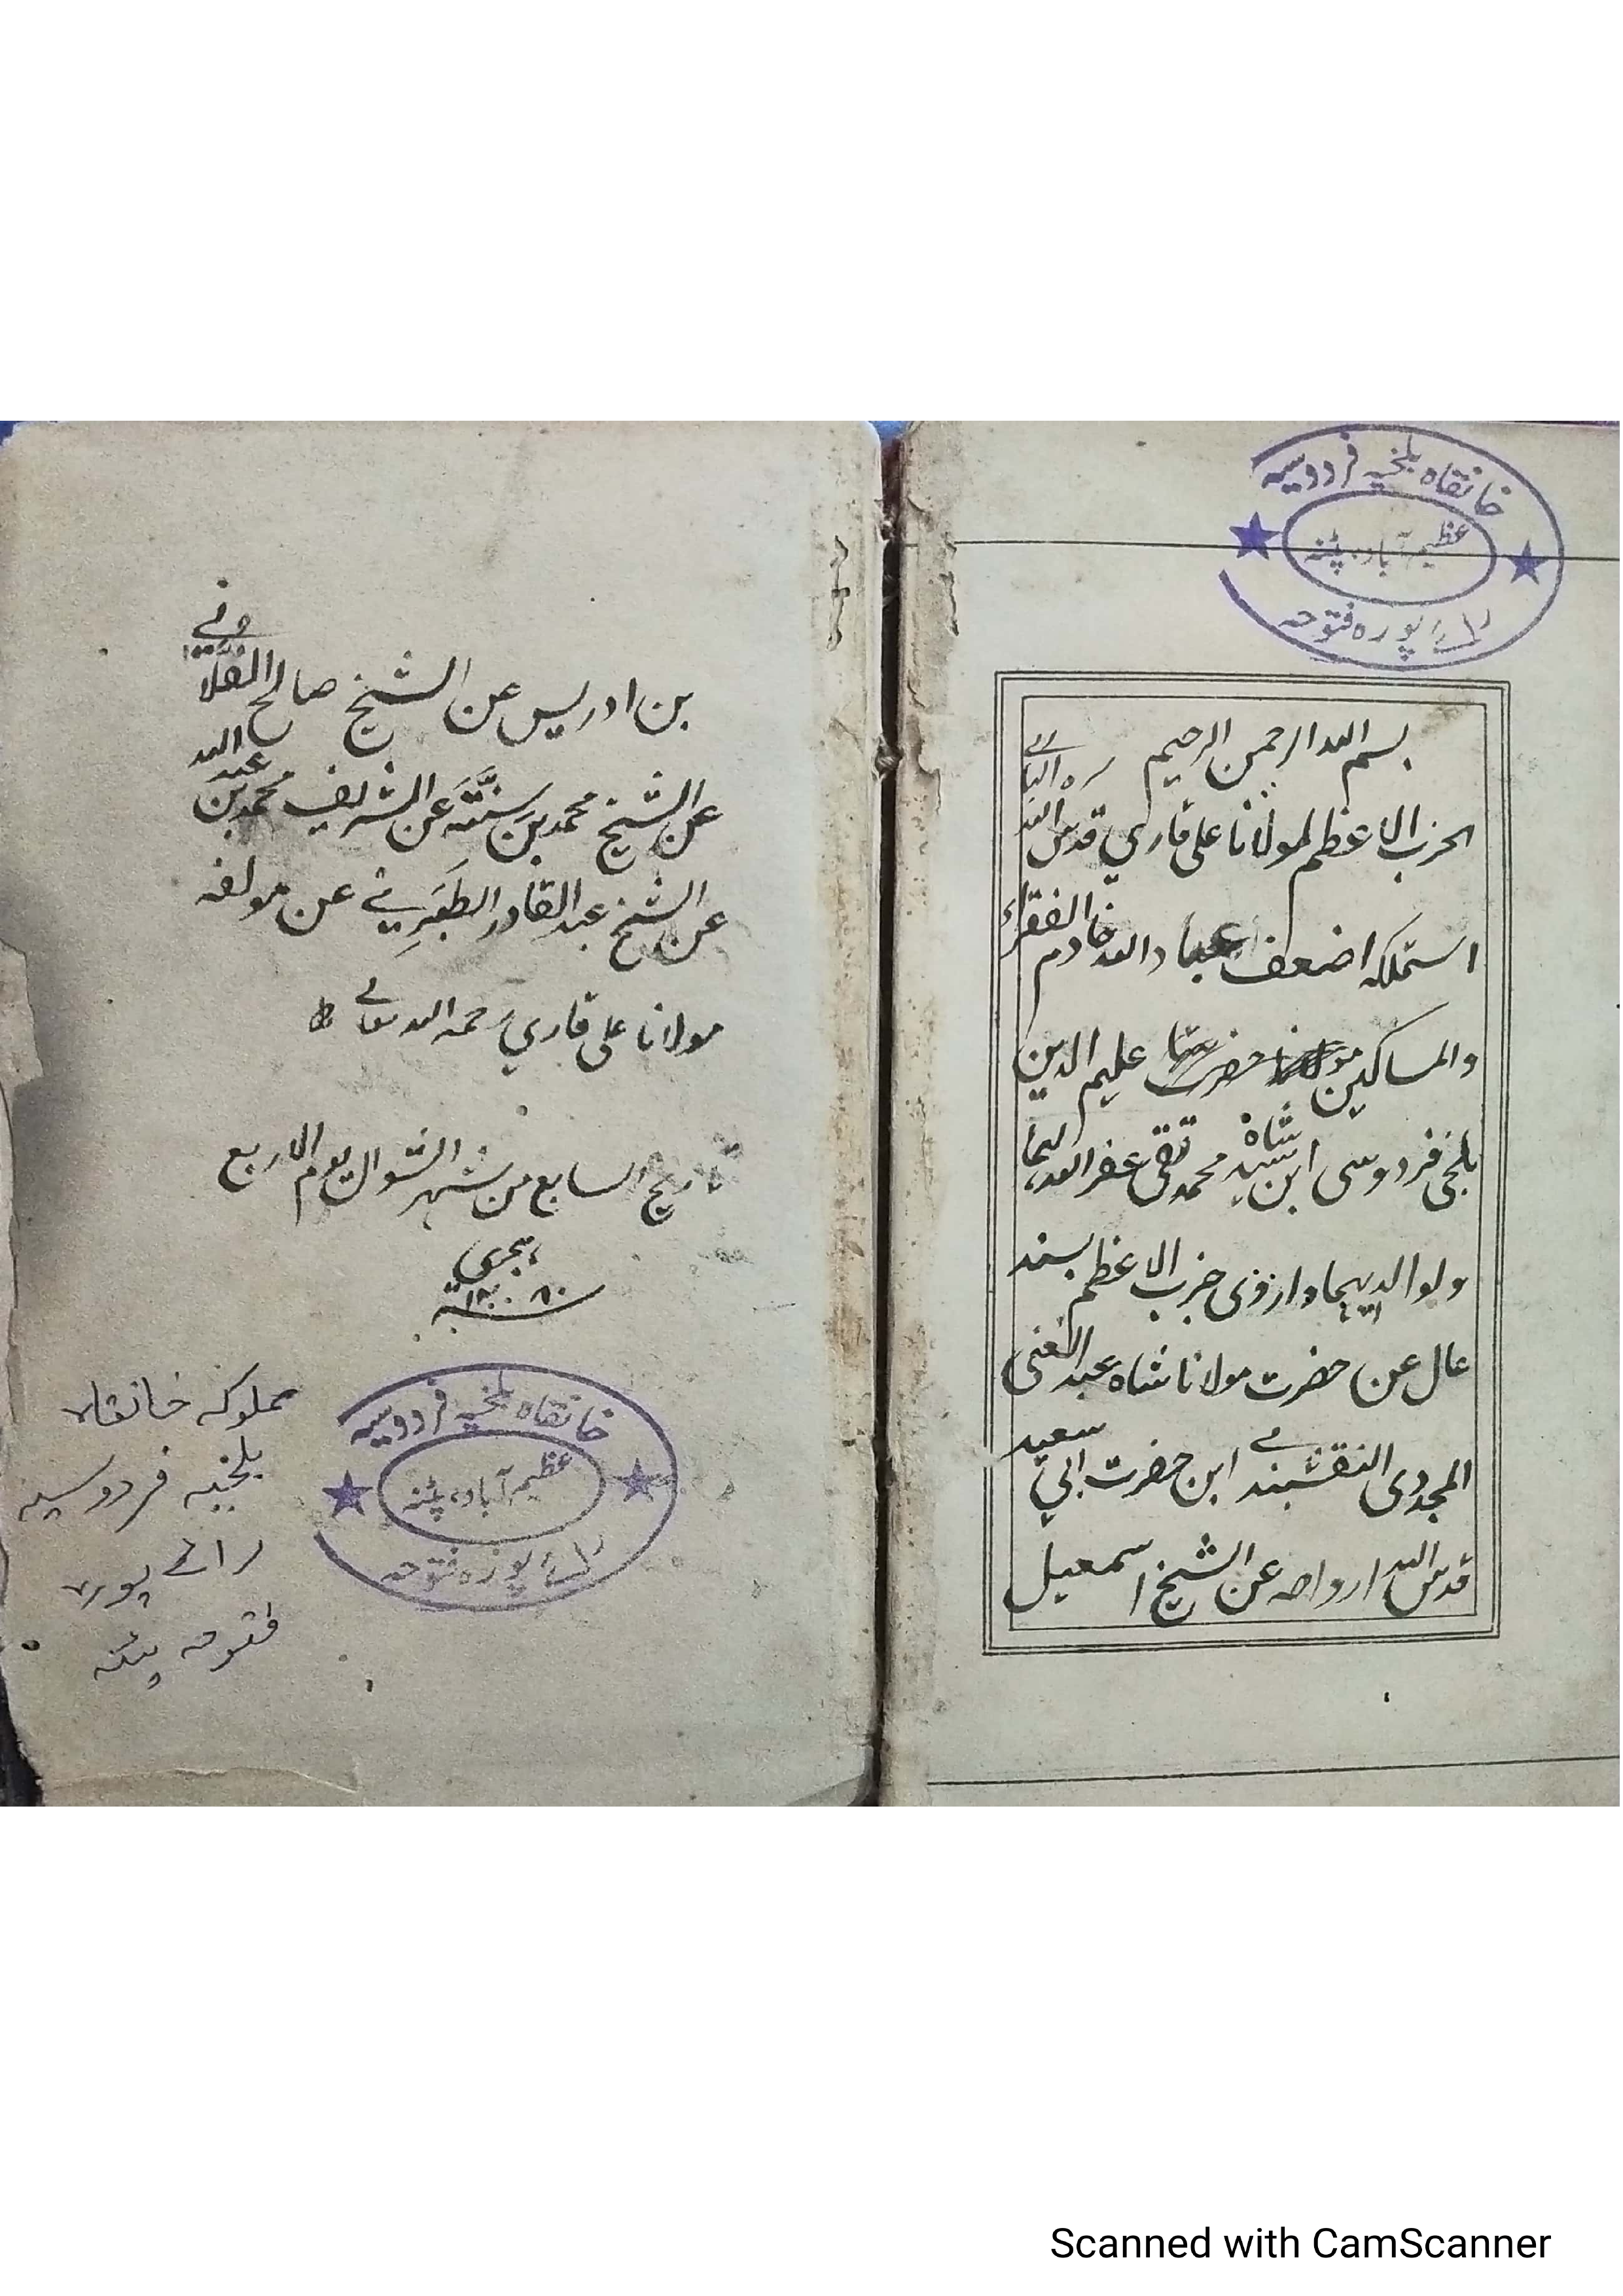 خانقاہ بلخیہ فردوسیہ
عظیم آباد، پٹنہ
رائے پورہ فتوحہ
بسم الله الرحمن الرحيم
الحزب الاعظم لمولانا علي قاري قدس الله سره الباري
استملكه اضعف عباد الله خادم الفقراء
والمساكين حضرت عليم الدين
بلخي فردوسی ابن سيد شاه محمد تقی غفر الله لهما
ولوالديهما وارزوی حزب الاعظم بسند
عال عن حضرت مولانا شاه عبد الغنی
المجددی النقشبندی ابن حضرت ابي سعيد
قدس الله ارواحه عن الشيخ اسمعيل
بن ادريس عن الشيخ صالح الفلاني
عن الشيخ محمد بن سنَّتَه عن الشريف محمد بن عبد الله
عن الشيخ عبد القادر الطَبَرِي عن مولفه
مولانا علی قاري رحمه الله تعالے
تاريخ السابع من شهر الشوال يوم الاربع
ہجری
خانقاہ بلخیہ فردوسیہ
عظیم آباد، پٹنہ
رائے پورہ فتوحہ
مملوکہ خانقاہ
بلخیہ فردوسیہ
رائے پورہ
فتوحہ پٹنہ
Scanned with CamScanner